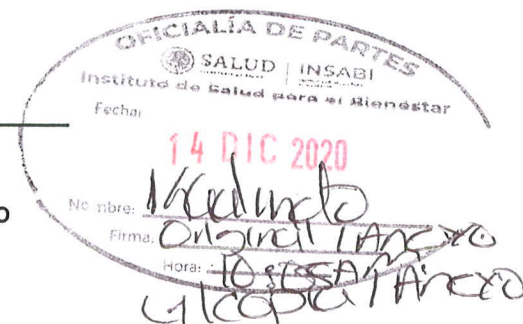 OFICIALÍA DE PARTES
SALUD | INSABI
Instituto de Salud para el Bienestar
Fecha:
14 DIC 2020
No nbre:
Firma: Original 1 Anexo
Hora: 10:55 AM
c/copia 1 Anexo
o